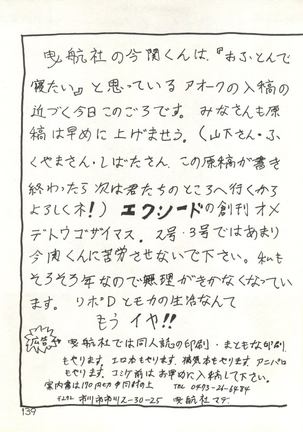 曳航社の今関くんは、『おふとんで
寝たい』と思っている アオークの入稿の
近づく今日このごろです。みなさんも原
稿は早めに上げませう。(山下さん・ふ
くやまさん・しばたさん この原稿が書き
終わったら次は君たちのところへ行くから
よろしくネ!) エクソードの創刊オメ
デトウゴザイマス。2号・3号ではあまり
今関くんに苦労させないで下さい。私も
そろそろ年なので無理がきかなくなってい
ます。リポDとモカの生活なんて
もう イヤ!!
広告 曳航社では同人誌の印刷・まともな印刷
もやります。エロ本もやります。横張本もやります。アニパロ
もやります。コミケ前はお早めに入稿して下さい。
案内書は170円のカ 同封の上 TEL 0473-26-6484
市川市市川2-30-25 曳航社マデ。
139